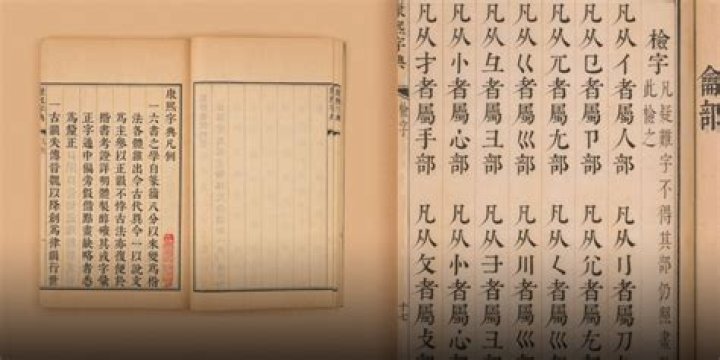 康熙字典凡例
一六書之學自篆籀八分以來變爲楷
法各體雜出今古代異今一以說文
爲主參以正韻不悖古法亦復便於
楷書考證詳明體製醇確其或字彙
正字通中偏旁假借點畫缺略者悉
爲釐正
一古韻失傳音以降創爲律韻行世
康熙字典
龠部
檢字
凡疑難字不得其部仍照畫
此檢之
凡从亻者屬人部 凡从刂者屬刀
凡从㔾者屬卩部 凡从尣者屬尢
凡从兀者屬尢部 凡从く者屬巛
凡从巜者屬巛部 凡从川者屬巛
凡从彑者屬彐部 凡从彐者屬彐
凡从小者屬心部 凡从㣺者屬心
凡从扌者屬手部 凡从攵者屬攴
康熙字典
檢字
十七